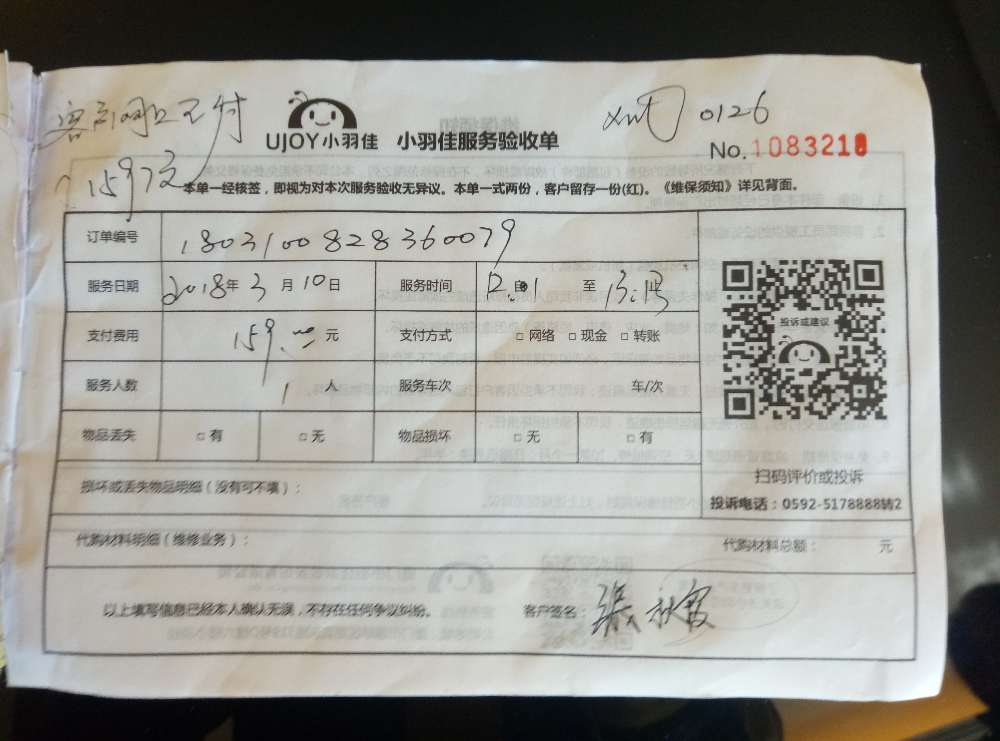 客户网上已付
159元
xmJ 0126
UJOY小羽佳 小羽佳服务验收单
No.1083218
本单一经核签，即视为对本次服务验收无异议。本单一式两份，客户留存一份(红)。《维保须知》详见背面。
订单编号 1803100828360079
服务日期 2018年3月10日 服务时间 至
支付费用 159.00元 支付方式 □网络 □现金 □转账
服务人数 1人 服务车次 车/次
物品丢失 □有 □无 物品损坏 □无 □有
投诉或建议
扫码评价或投诉
投诉电话：0592-5178888转2
损坏或丢失物品明细（没有可不填）：
代购材料明细（维修业务）： 代购材料总额： 元
以上填写信息已经本人确认无误，不存在任何争议纠纷。 客户签名：张